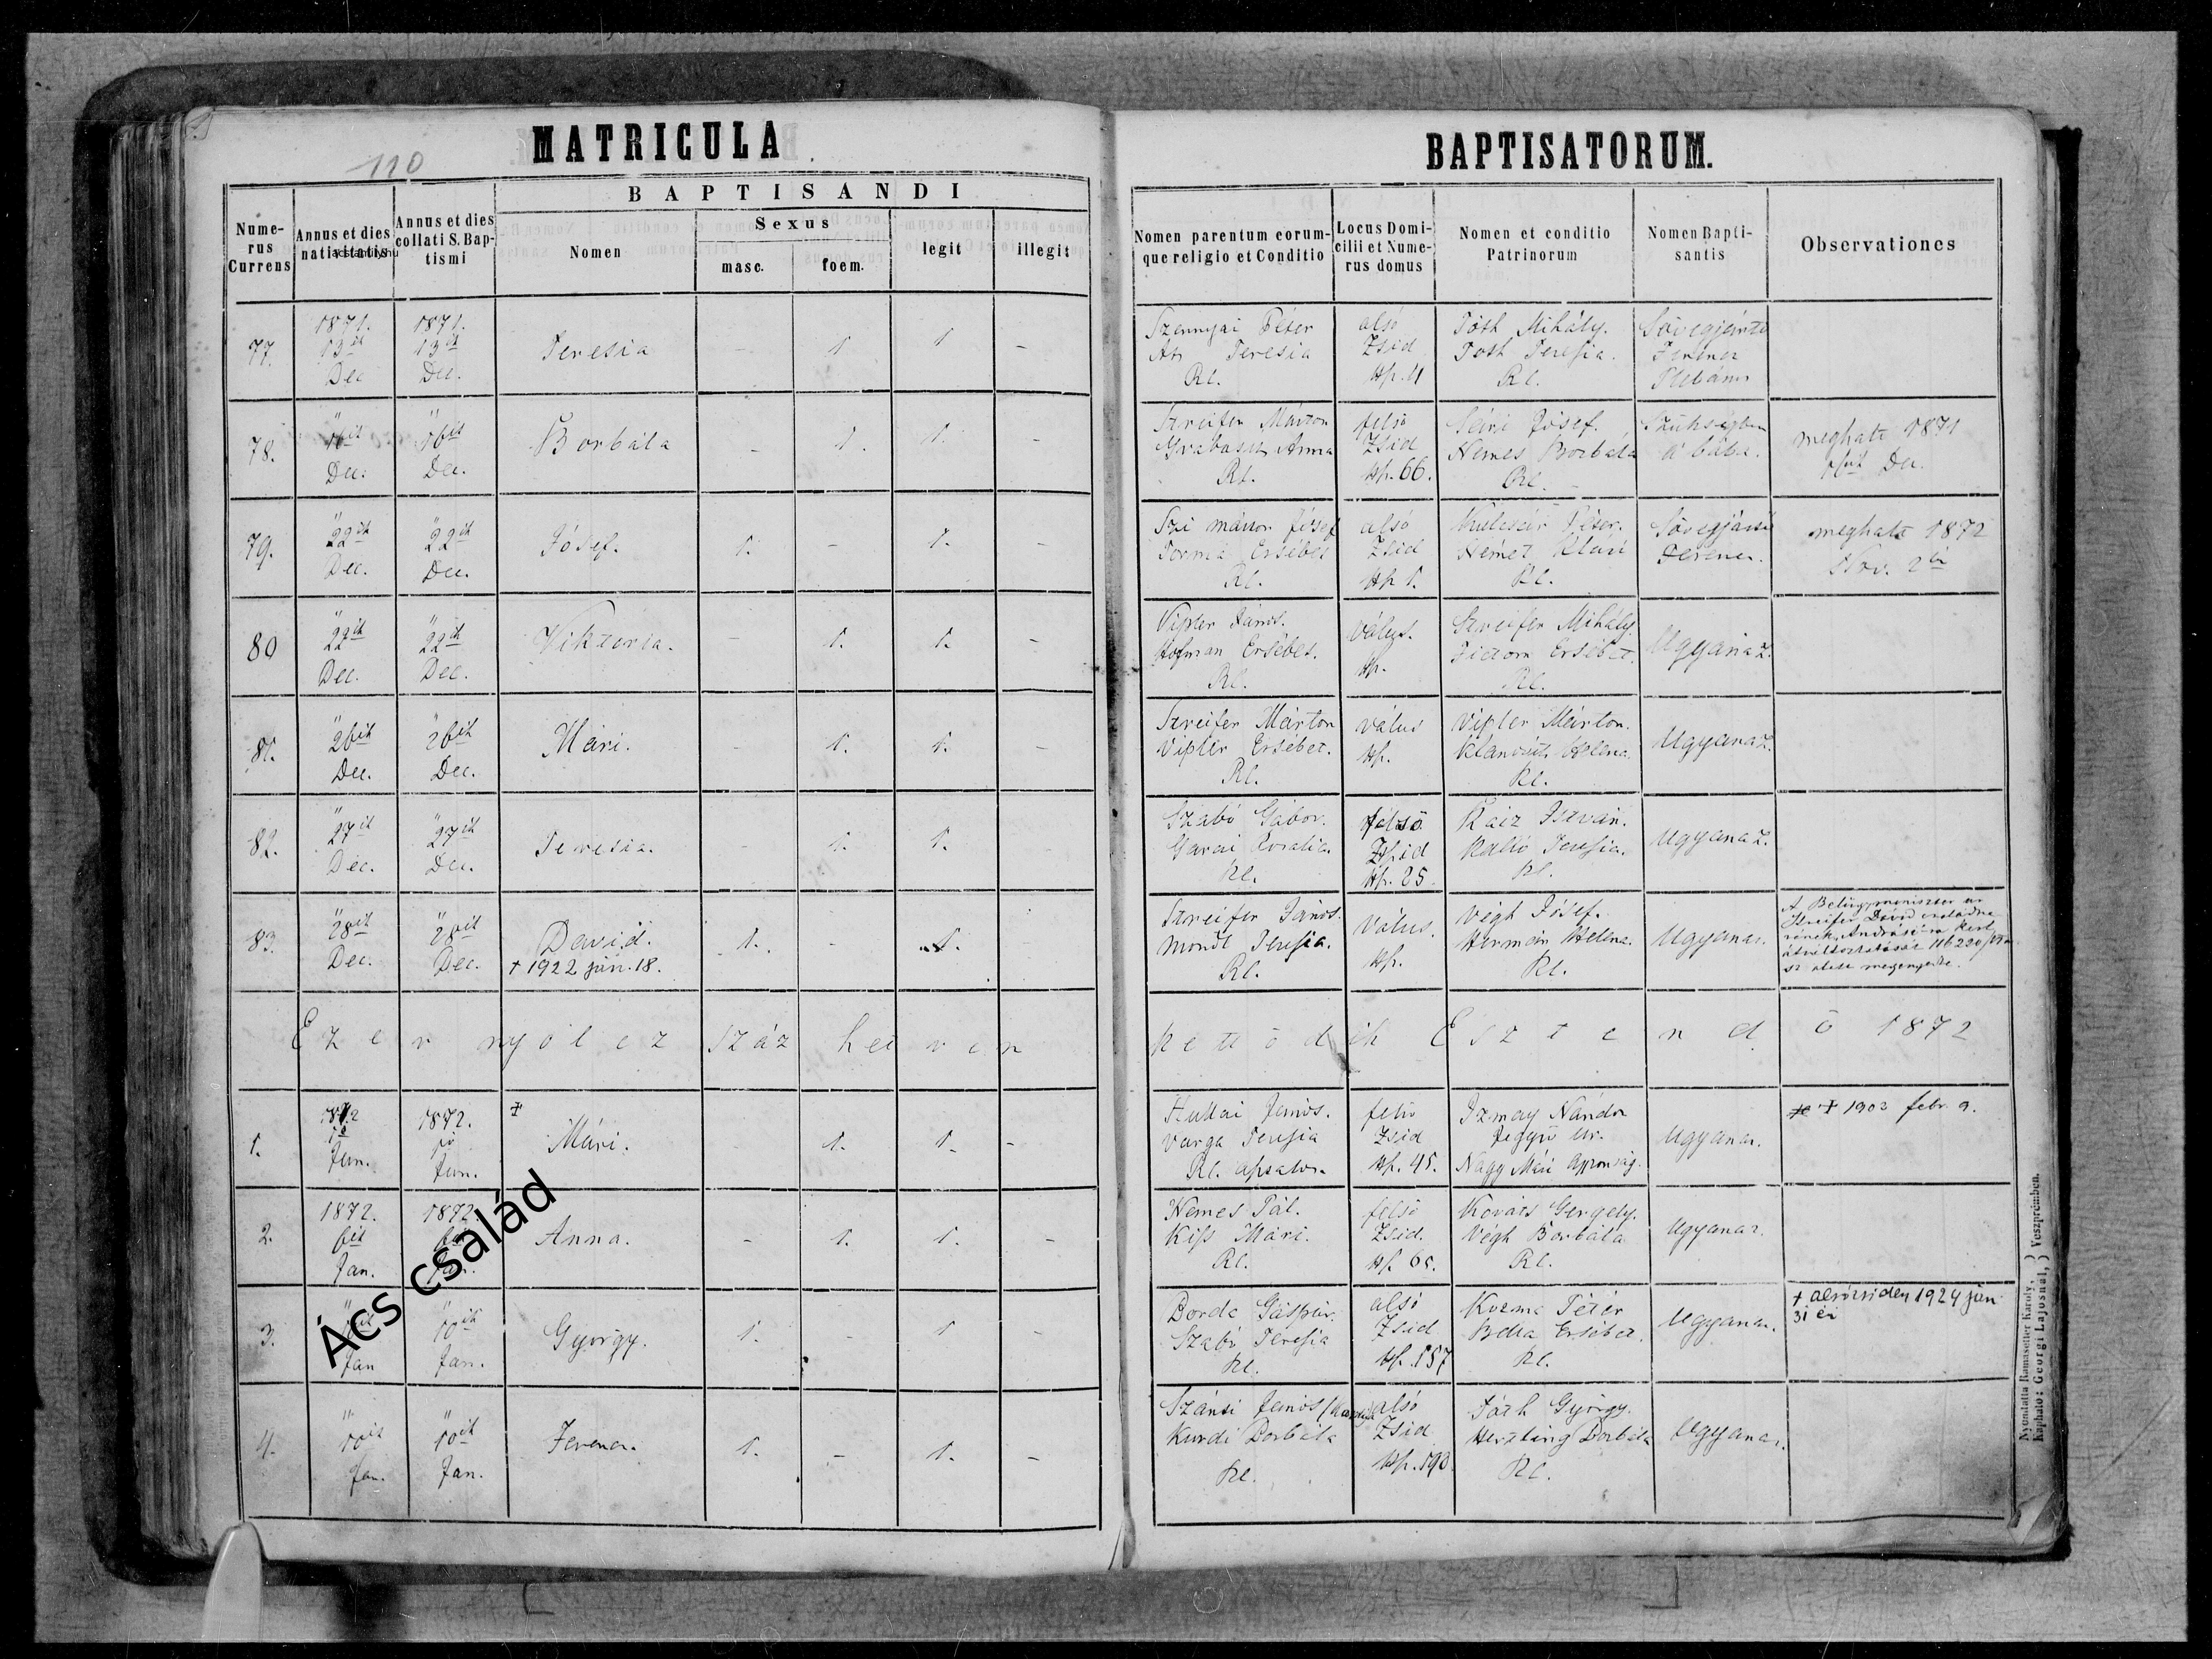 110
MATRICULA
BAPTISANDI
Nume-
rus
Currens
Annus et dies
nativitatis
Annus et dies
collati S. Bap-
tismi
Nomen
Sexus
masc.
foem.
legit
illegit
BAPTISATORUM.
Nomen parentum eorum-
que religio et Conditio
Locus Domi-
cilii et Nume-
rus domus
Nomen et conditio
Patrinorum
Nomen Bapti-
santis
Observationes
77.
1871.
13ik
Dec
1871.
13ik
Dec.
Teresia
-
1
1
-
Szennyai Péter
Teresia
Rc.
alsó
Zsid
Hp. 11
Tóth Mihály.
Toth Teresia.
Rc.
Ferencz
Plébános
78.
"
16ik
Dec.
"
16ik
Dec.
Borbála
-
1.
1.
-
Streifer Márton
Anna
Rc.
felső
Zsid
Hp. 66.
Sári Jósef.
Nemes Borbála
Rc.
Szükségben
a bába.
meghalt 1871
Dec.
79.
"
22ik
Dec.
"
22ik
Dec.
Jósef.
1.
-
1.
Jósef
Torma Ersébet
Rc.
alsó
Zsid
Hp 1.
Kulcsár Péter.
Német Klári
Rc.
Ferencz.
meghalt 1872
Nov. 2án
80
"
22ik
Dec.
"
22ik
Dec.
Viktoria.
-
1.
1.
-
Vipler János.
Hofman Ersébet.
Rc.
Válus.
Hp.
Streifer Mihály.
Ersébet.
Rc.
Ugyanaz.
81.
"
26ik
Dec.
"
26ik
Dec.
Mári.
-
1.
1.
-
Streifer Márton
Vipler Ersébet.
Rc.
Válus
Hp.
Vipler Márton.
Helena.
Rc.
Ugyanaz.
82.
"
27ik
Dec.
"
27ik
Dec.
Teresia.
-
1.
1.
-
Szabó Gábor.
Garai Rosalia.
Rc.
felső
Zsid
Hp. 25.
István.
Teresia.
Rc.
Ugyanaz.
83.
"
28ik
Dec.
"
28ik
Dec.
David.
+ 1922 jún. 18.
1.
-
1.
Streifer János.
Teresia.
Rc.
Válus.
Hp.
Végh Jósef.
Herman Helena.
Rc.
Ugyanaz.
A Belügyminiszter úr
Streifer Dávid
megengedte.
Ezer nyolcz száz hetven
kettödik Esztendö 1872
1.
1872.
Jan.
1872.
Jan.
Mári.
-
1.
1.
-
János.
Varga Teresia
Rc.
felső
Zsid
Hp. 45.
Nándor
úr.
Nagy Mári
Ugyanaz.
+ 1903 febr. 9.
2.
1872.
6ik
Jan.
1872
Jan.
Anna.
-
1.
1.
-
Nemes Pál.
Kiss Mári.
Rc.
felső
Zsid.
Hp. 65.
Kovács Gergely.
Végh Borbála
Rc.
Ugyanaz.
3.
"
Jan
"
10ik
Jan.
György.
1.
-
1
-
Gáspár.
Szabó Teresia
Rc.
alsó
Zsid
Hp. 157
Kozma Péter
Bella Ersébet.
Rc.
Ugyanaz.
+ alsózsiden 1924 jan
31 én
4.
"
10ik
Jan.
"
10ik
Jan.
Ferencz.
1.
-
1.
-
János
Kurdi Borbála
Rc.
alsó
Zsid
Hp. 190
Tóth György.
Herzling Borbála
Rc.
Ugyanaz.
Ács család
Nyomtatta Ramasetter Károly,
Kapható: Georgi Lajosnál,
Veszprémben.